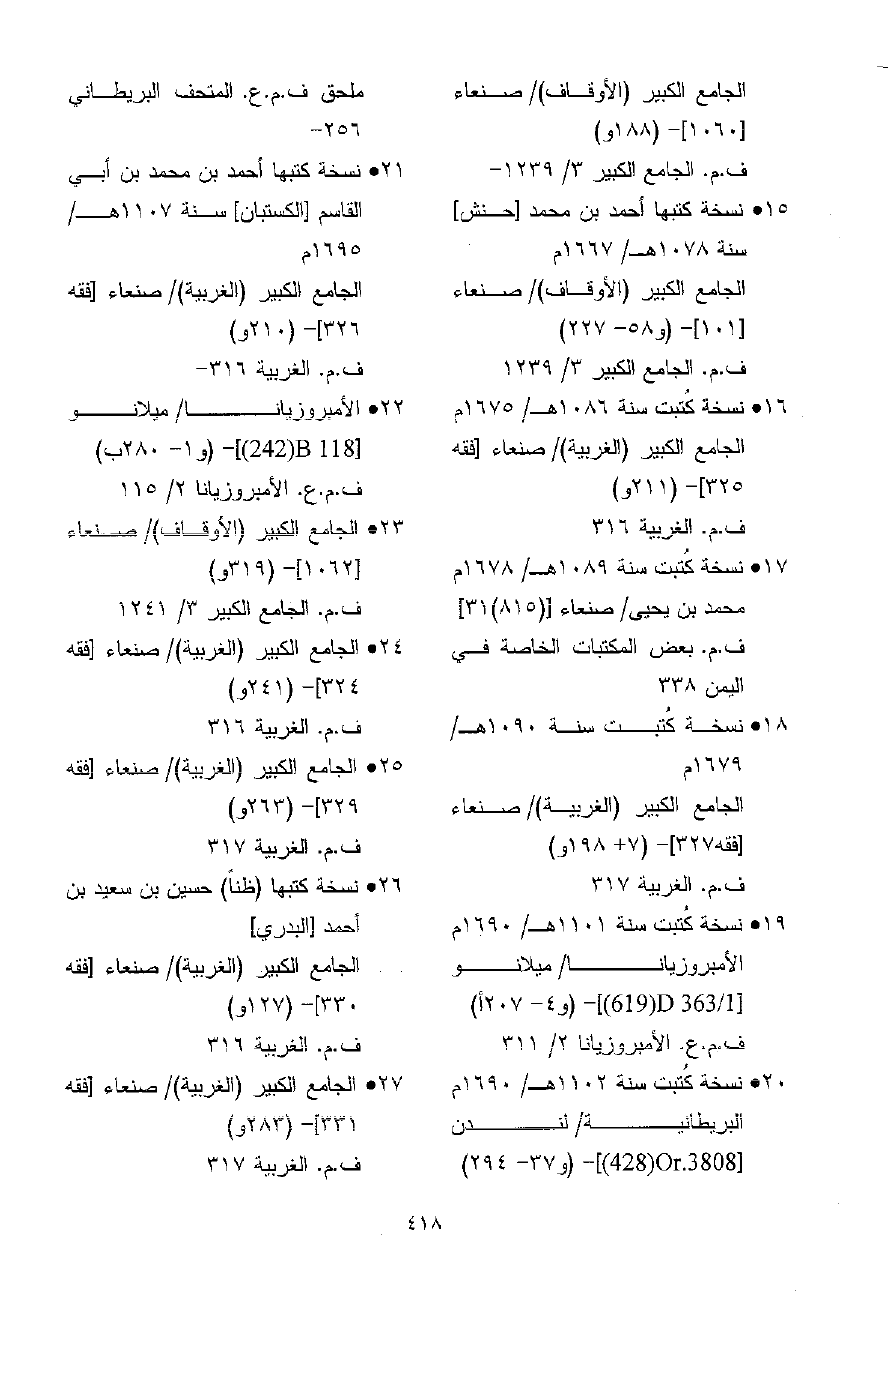 الجامع الكبير (الأوقاف)/ صنعاء
[١٠٦٠]- (١٨٨و)
ف.م. الجامع الكبير ٣/ ١٢٣٩-
١٥• نسخة كتبها أحمد بن محمد [حنش]
سنة ١٠٧٨هـ/ ١٦٦٧م
الجامع الكبير (الأوقاف)/ صنعاء
[١٠١]- (و٥٨- ٢٢٧)
ف.م. الجامع الكبير ٣/ ١٢٣٩
١٦• نسخة كُتبت سنة ١٠٨٦هـ/ ١٦٧٥م
الجامع الكبير (الغربية)/ صنعاء [فقه
٣٢٥]- (٢١١و)
ف.م. الغربية ٣١٦
١٧• نسخة كُتبت سنة ١٠٨٩هـ/ ١٦٧٨م
محمد بن يحيى/ صنعاء [(٨١٥)٣١]
ف.م. بعض المكتبات الخاصة في
اليمن ٣٣٨
١٨• نسخة كُتبت سنة ١٠٩٠هـ/
١٦٧٩م
الجامع الكبير (الغربية)/ صنعاء
[فقه٣٢٧]- (٧+ ١٩٨و)
ف.م. الغربية ٣١٧
١٩• نسخة كُتبت سنة ١١٠١هـ/ ١٦٩٠م
الأمبروزيانا/ ميلانو
[D 363/1(619)]- (و٤- ٢٠٧أ)
ف.م.ع. الأمبروزيانا ٢/ ٣١١
٢٠• نسخة كُتبت سنة ١١٠٢هـ/ ١٦٩٠م
البريطانية/ لندن
[Or.3808(428)]- (و٣٧- ٢٩٤)
ملحق ف.م.ع. المتحف البريطاني
٢٥٦-
٢١• نسخة كتبها أحمد بن محمد بن أبي
القاسم [الكستبان] سنة ١١٠٧هـ/
١٦٩٥م
الجامع الكبير (الغربية)/ صنعاء [فقه
٣٢٦]- (٢١٠و)
ف.م. الغربية ٣١٦-
٢٢• الأمبروزيانا/ ميلانو
[B 118(242)]- (و١- ٢٨٠ب)
ف.م.ع. الأمبروزيانا ٢/ ١١٥
٢٣• الجامع الكبير (الأوقاف)/ صنعاء
[١٠٦٢]- (٣١٩و)
ف.م. الجامع الكبير ٣/ ١٢٤١
٢٤• الجامع الكبير (الغربية)/ صنعاء [فقه
٣٢٤]- (٢٤١و)
ف.م. الغربية ٣١٦
٢٥• الجامع الكبير (الغربية)/ صنعاء [فقه
٣٢٩]- (٢٦٣و)
ف.م. الغربية ٣١٧
٢٦• نسخة كتبها (ظناً) حسين بن سعيد بن
أحمد [البدري]
الجامع الكبير (الغربية)/ صنعاء [فقه
٣٣٠]- (١٢٧و)
ف.م. الغربية ٣١٦
٢٧• الجامع الكبير (الغربية)/ صنعاء [فقه
٣٣١]- (٢٨٣و)
ف.م. الغربية ٣١٧
٤١٨